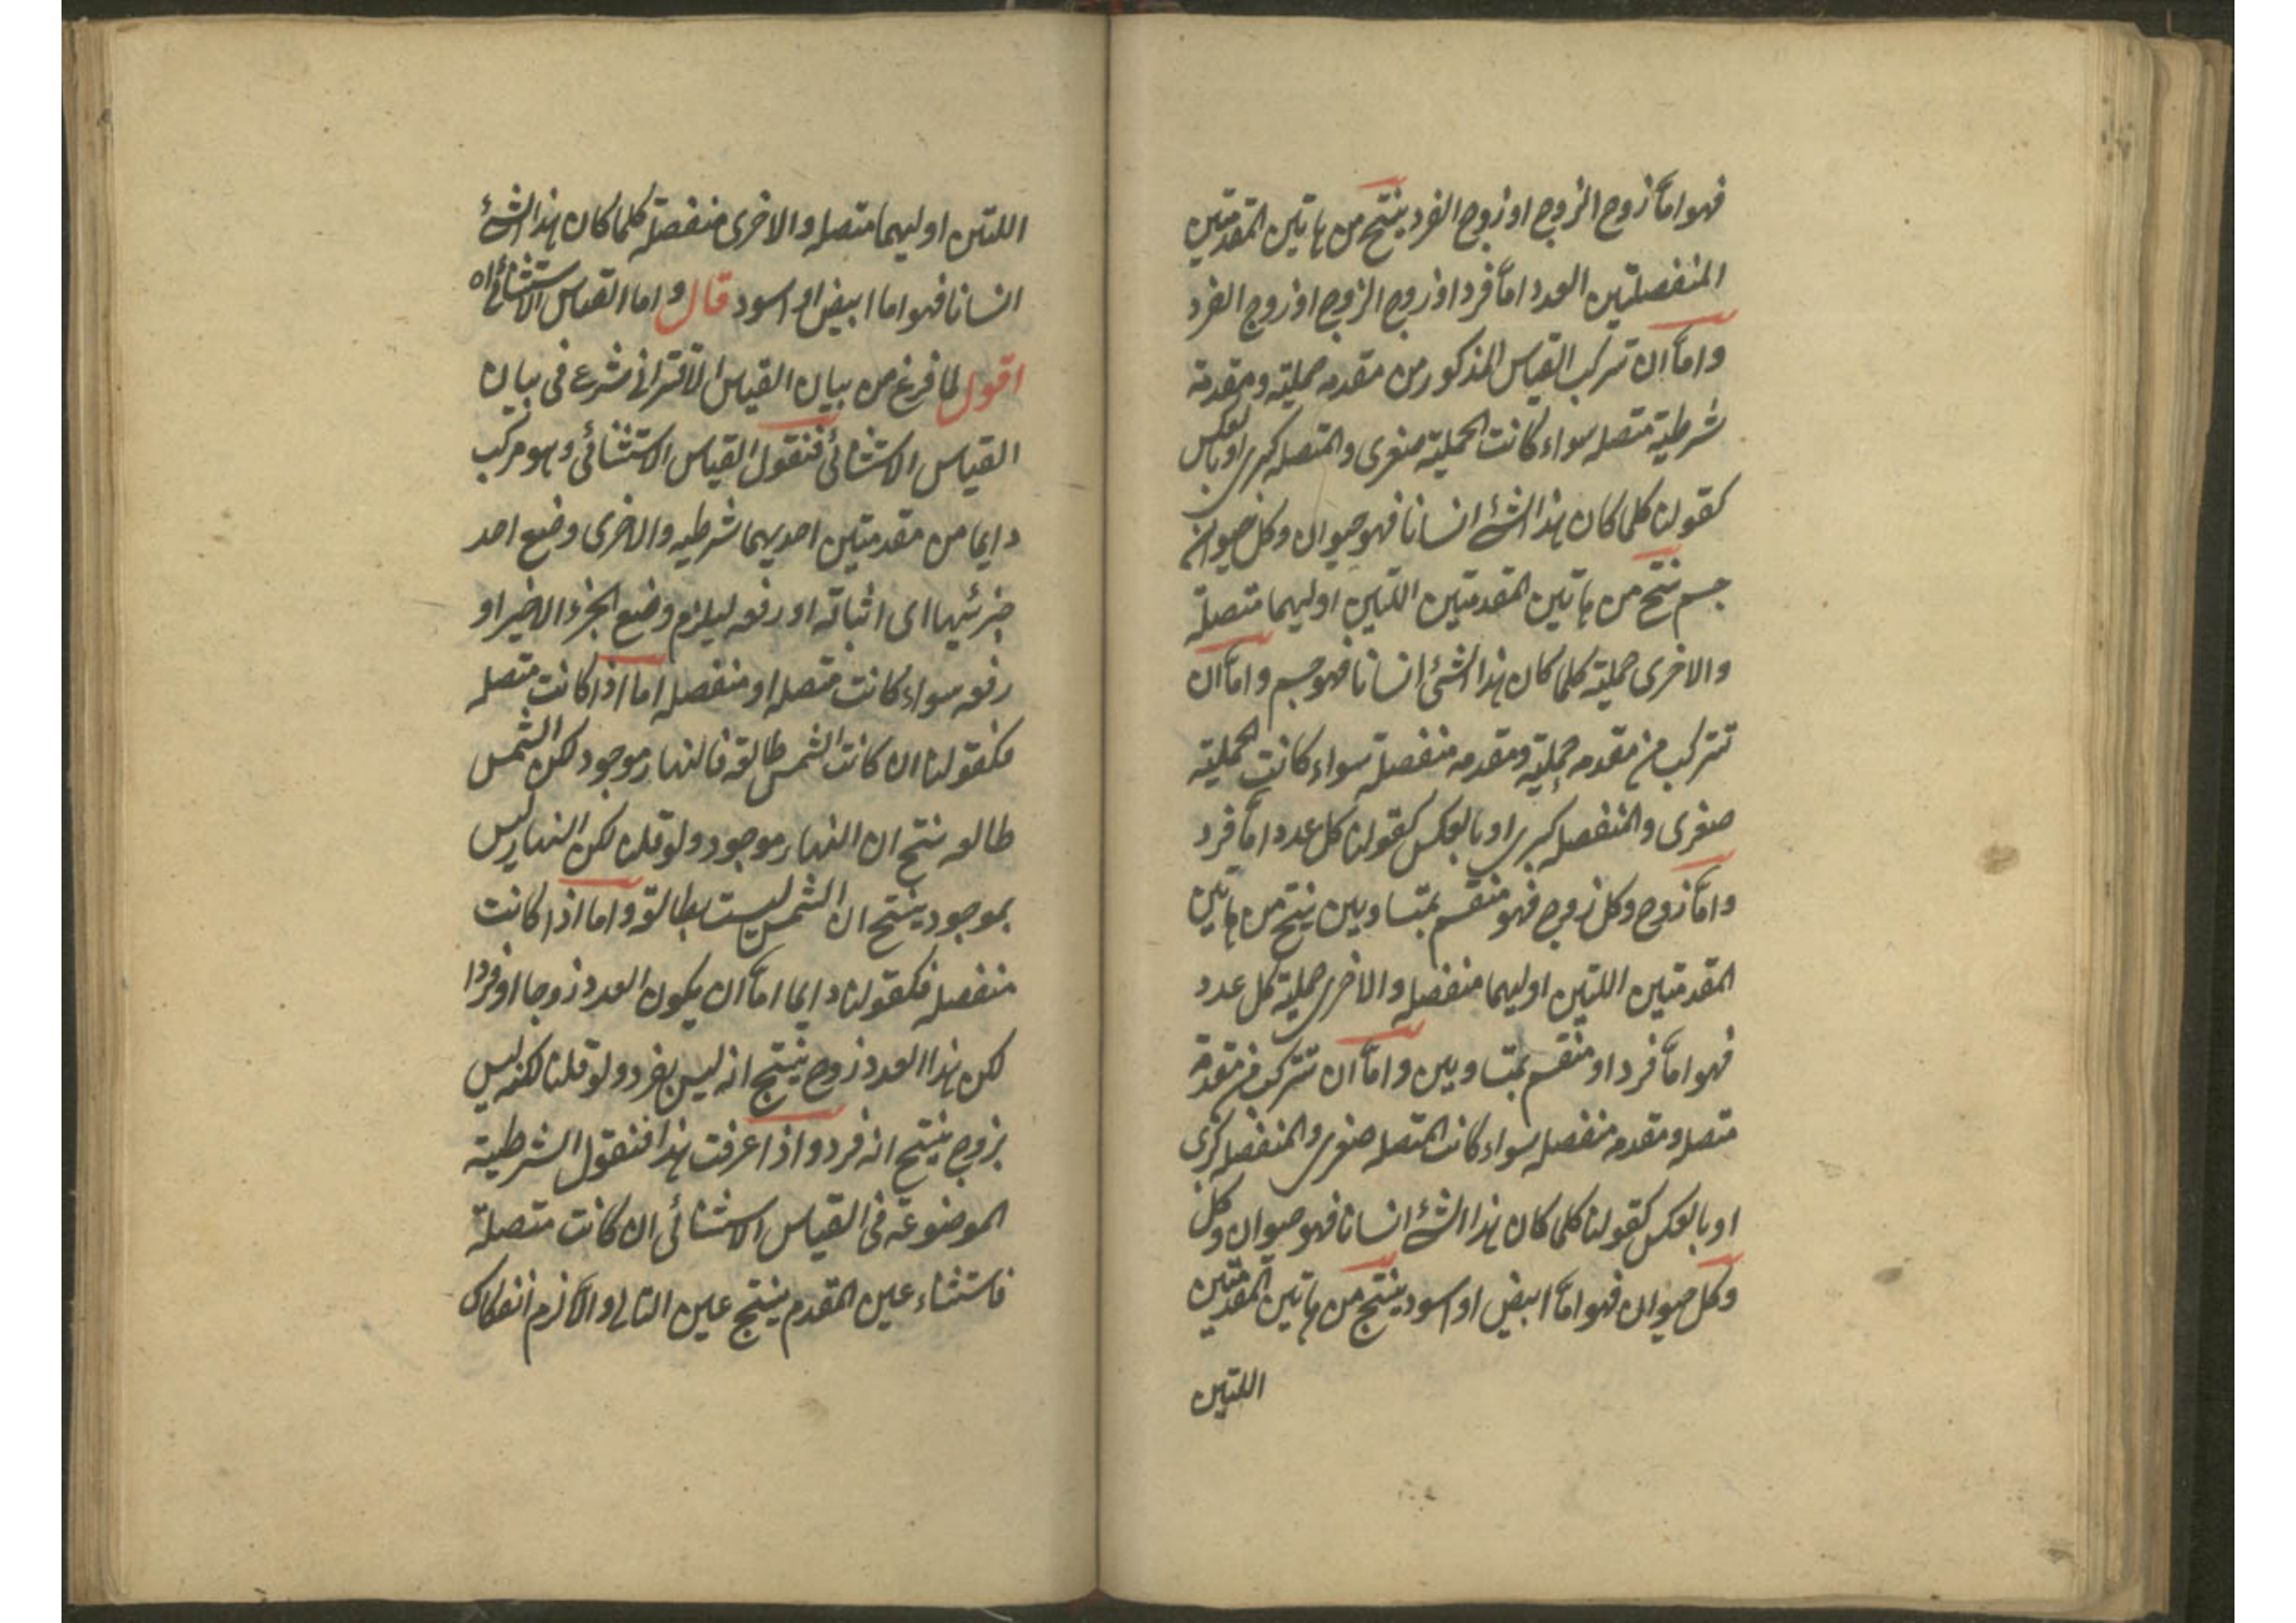 فهو اما زوج الزوج او زوج الفرد ينتج من هاتين المقدمتين
المنفصلتين العدد اما فرد او زوج الزوج او زوج الفرد
واما ان تركب القياس المذكور من مقدمه حملية ومقدمة
شرطية متصله سواء كانت الحملية صغرى والمتصله كبرى او بالعكس
كقولنا كلما كان هذا الشئ انسانا فهو حيوان وكل حيوان
جسم ينتج من هاتين المقدمتين اللتين اوليهما متصلة
والاخرى حملية كلما كان هذا الشئ انسانا فهو جسم واما ان
تتركب من مقدمه حملية ومقدمه منفصلة سواء كانت الحملية
صغرى والمنفصله كبرى او بالعكس كقولنا كل عدد اما فرد
واما زوج وكل زوج فهو منقسم بمتساويين ينتج من هاتين
المقدمتين اللتين اوليهما منفصله والاخرى حملية كل عدد
فهو اما فرد او منقسم بمتساويين واما ان تتركب من مقدمة
متصله ومقدمه منفصله سواء كانت المتصله صغرى والمنفصله كبرى
او بالعكس كقولنا كلما كان هذا الشئ انسانا فهو حيوان وكل
وكل حيوان فهو اما ابيض او اسود ينتج من هاتين المقدمتين
اللتين
اللتين اوليهما متصله والاخرى منفصلة كلما كان هذا الشئ
انسانا فهو اما ابيض او اسود قال واما القياس الاستثنائى اه
اقول لما فرغ من بيان القياس الاقترانى شرع فى بيان
القياس الاستثنائى فنقول القياس الاستثنائى وهو مركب
دايما من مقدمتين احديهما شرطيه والاخرى وضع احد
جزئيها اى اثباته او رفعه ليلزم وضع الجزء الاخير او
رفعه سواء كانت متصله او منفصله اما اذا كانت متصله
فكقولنا ان كانت الشمس طالعة فالنهار موجود لكن الشمس
طالعه ينتج ان النهار موجود ولو قلنا لكن النهار ليس
بموجود ينتج ان الشمس ليست بطالعة واما اذا كانت
منفصله فكقولنا دايما اما ان يكون العدد زوجا او فردا
لكن هذا العدد زوج ينتج انه ليس بفرد ولو قلنا لكنه ليس
بزوج ينتج انه فرد واذا عرفت هذا فنقول الشرطية
الموضوعة فى القياس الاستثنائى ان كانت متصلة
فاستثناء عين المقدم ينتج عين التالى والا لزم انفكاك